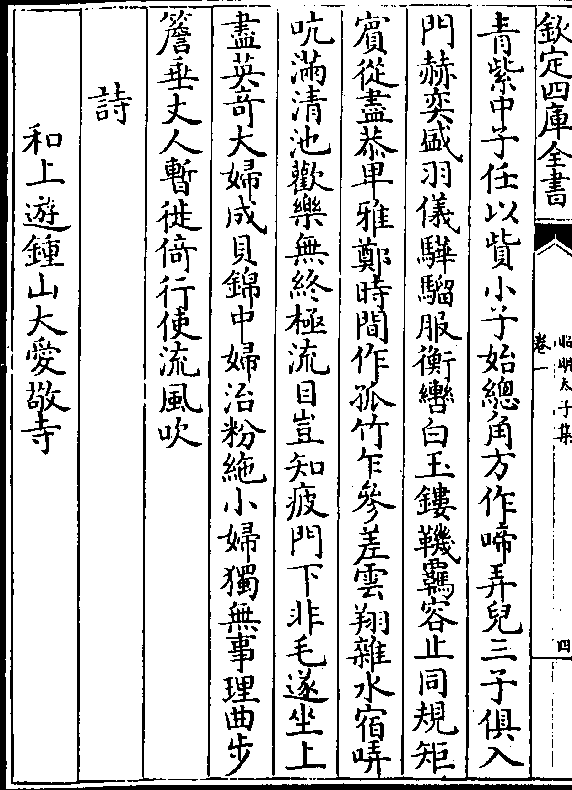 欽定四庫全書
昭明太子集
卷一
四
青紫中子任以貲小子始總角方作啼弄兒三子俱入
門赫奕盛羽儀驊騮服衡轡白玉鏤鞿羈容止同規矩
賓從盡恭卑雅鄭時間作孤竹乍參差雲翔雜水宿哢
吭滿清池歡樂無終極流目豈知疲門下非毛遂坐上
盡英奇大婦成貝錦中婦治粉絁小婦獨無事理曲步
簷垂丈人暫徙倚行使流風吹
詩
和上遊鍾山大愛敬寺